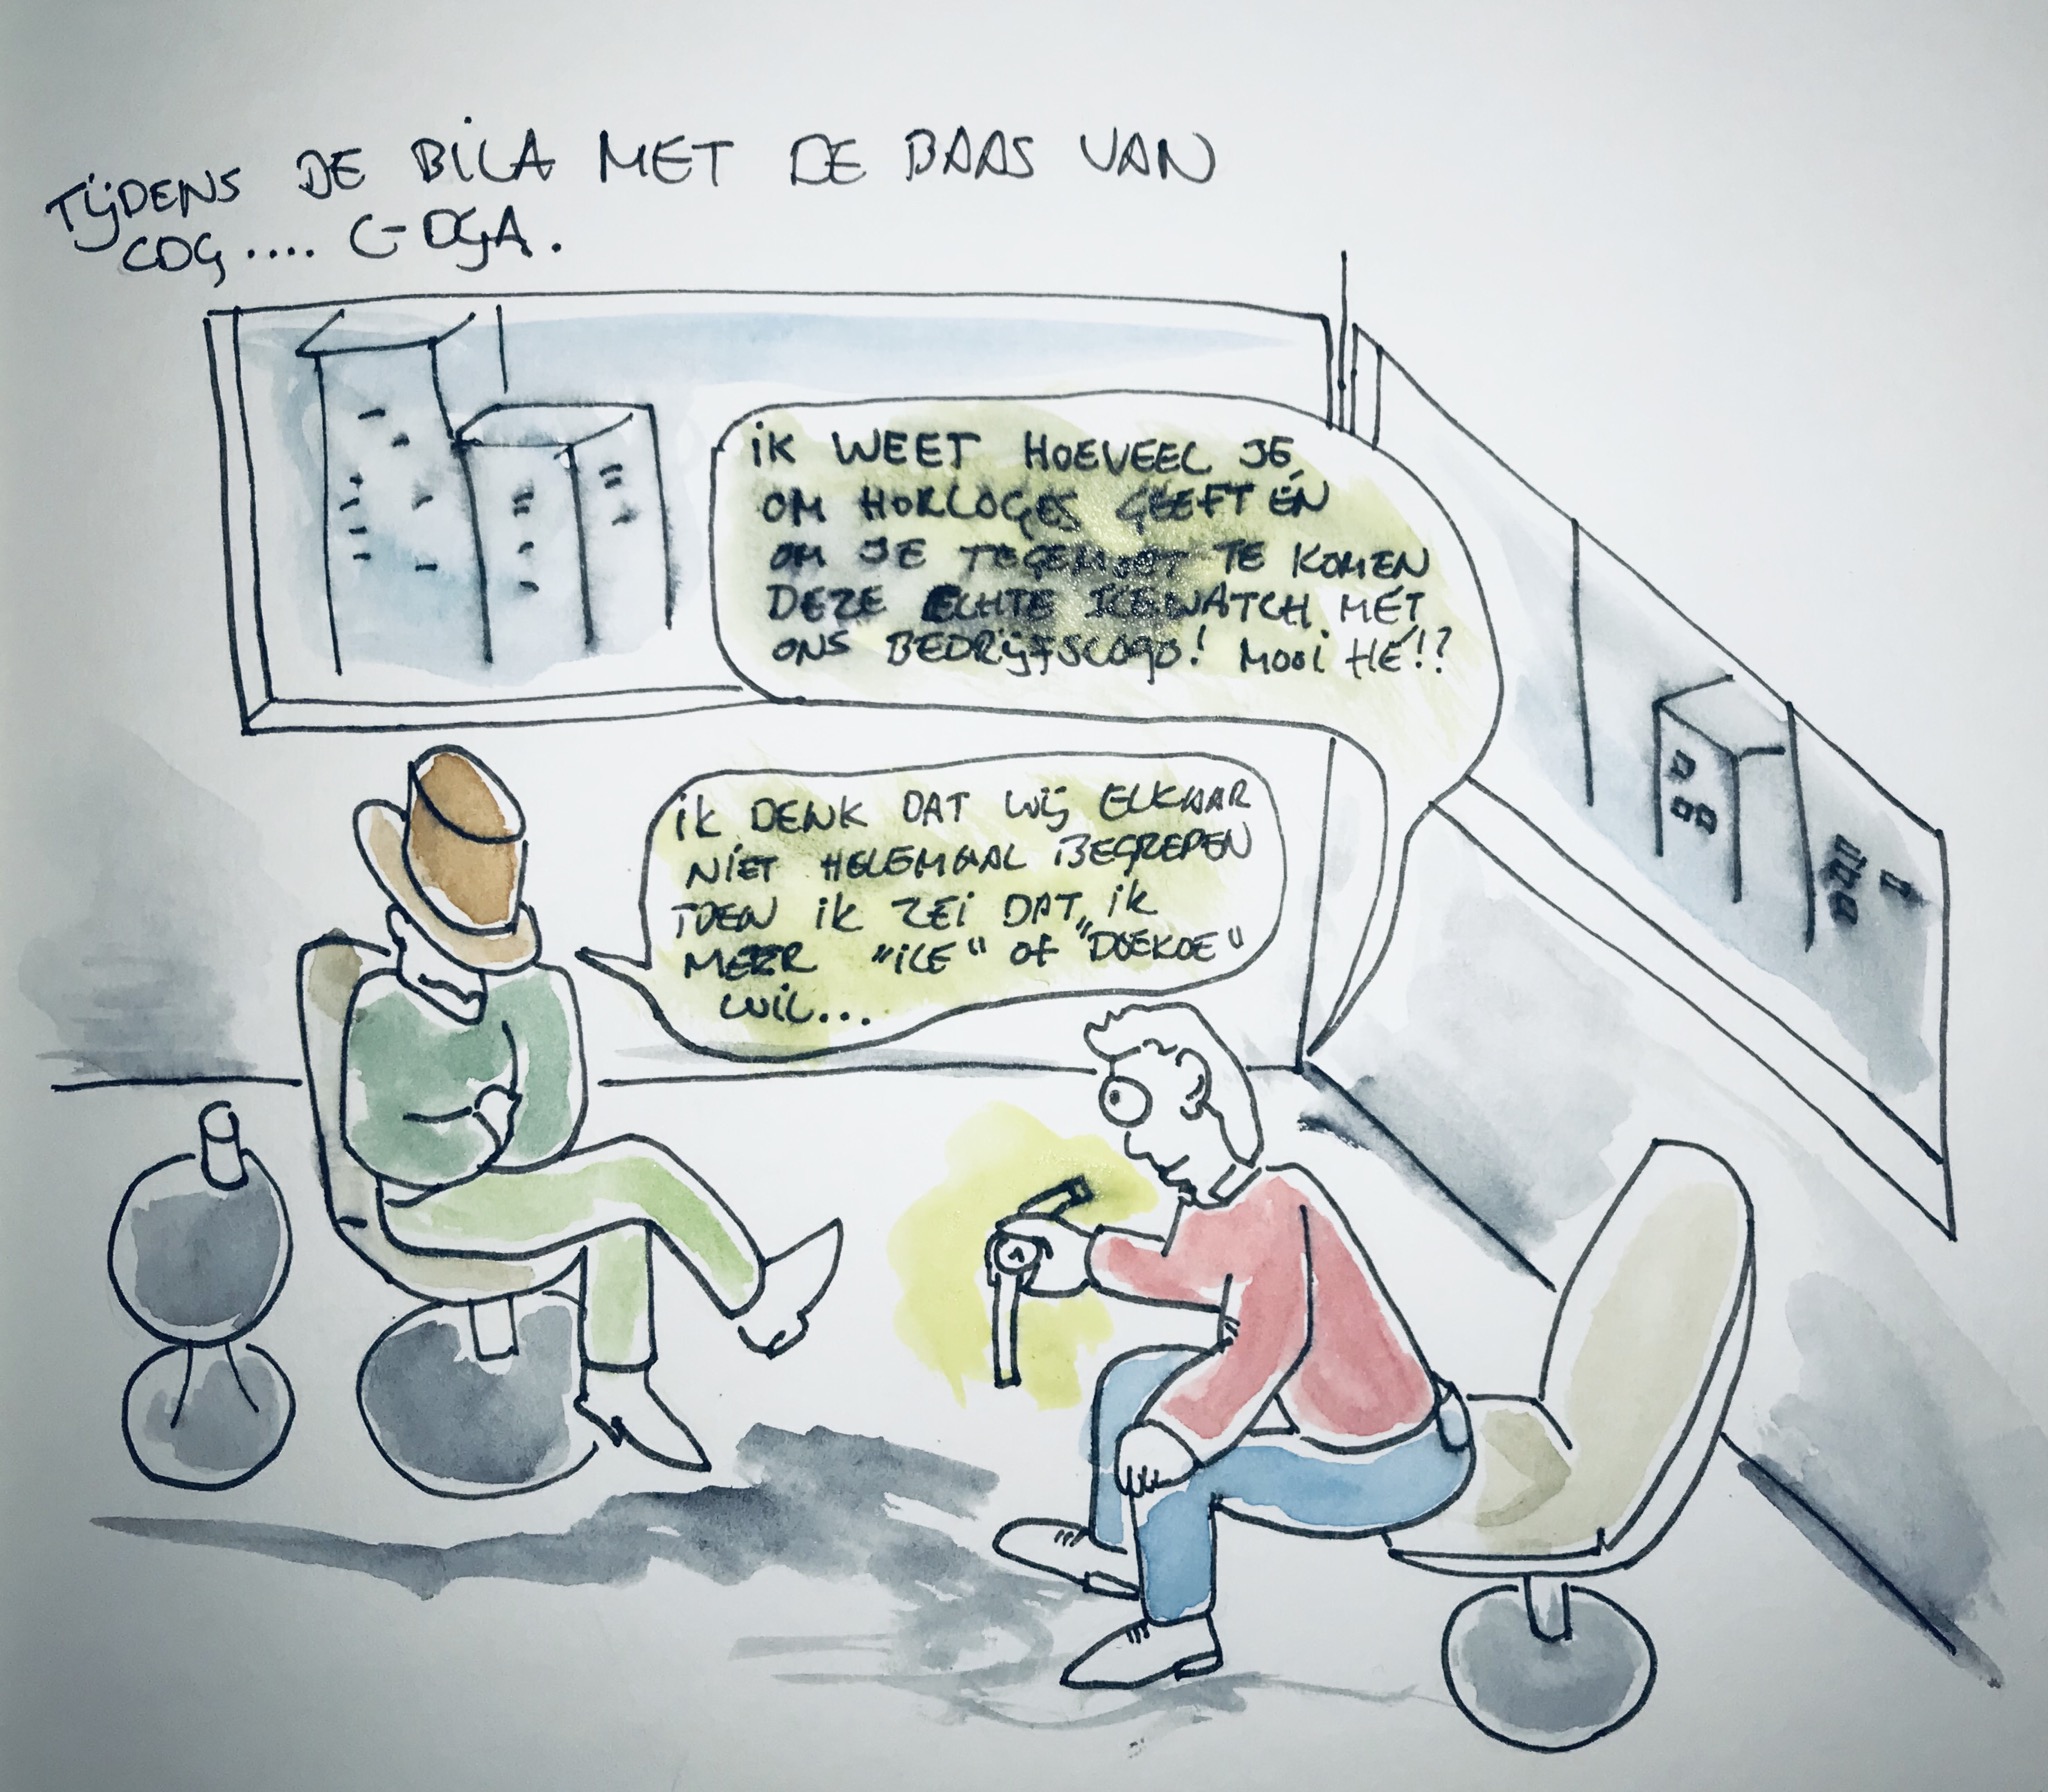 TIJDENS DE BILA MET DE BAAS VAN
CDG.... C-DGA.
IK WEET HOEVEEL JE
OM HORLOGES GEEFT ÉN
OM JE TEGEMOET TE KOMEN
DEZE ECHTE ICEWATCH MET
ONS BEDRIJFSLOGO! MOOI HÉ!?
IK DENK DAT WIJ ELKAAR
NIET HELEMAAL BEGREPEN
TOEN IK ZEI DAT IK
MEER "ICE" OF "DOEKOE"
WIL...